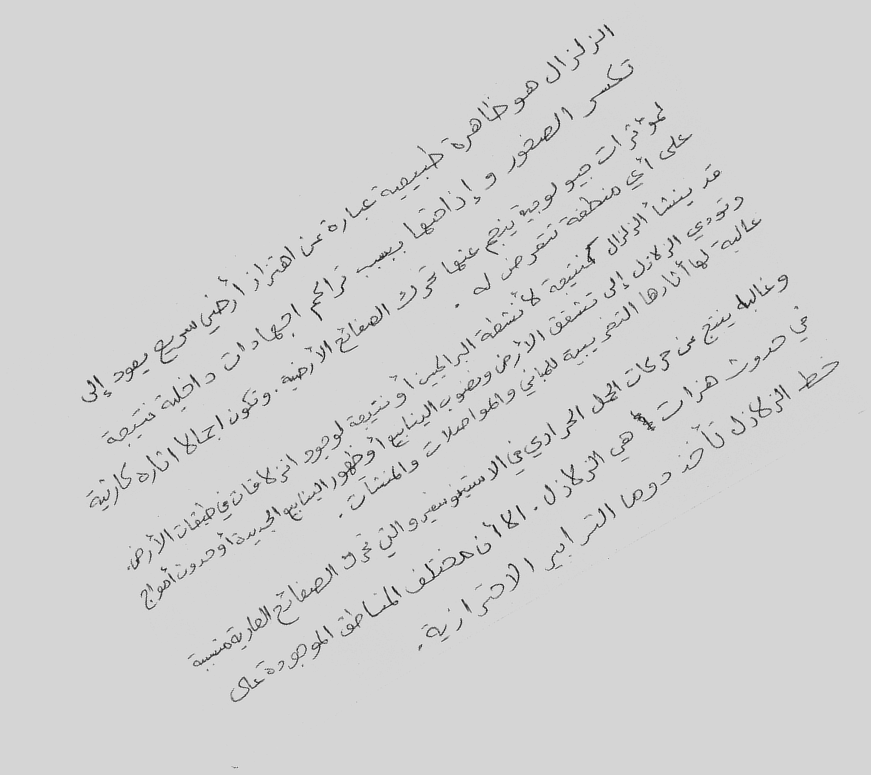 الزلزال هو ظاهرة طبيعية عبارة عن اهتزاز أرضي سريع يعود إلى
تكسر الصخور و إزاحتها بسبب تراكم اجهادات داخلية نتيجة
لمؤثرات جيولوجية ينجم عنها تحرك الصفائح الأرضية. وتكون اجمالا اثاره كارثية
على أي منطقة تتعرض له.
قد ينشأ الزلزال كنتيجة لأنشطة البراكين أو نتيجة لوجود انزلاقات في طبقات الأرض.
وتودي الزلازل إلى تشقق الأرض ونضوب الينابيع أو ظهور الينابيع الجديدة أو حدوث أمواج
عالية لها أثارها التخريبية للمباني والمواصلات والمنشآت.
وغالبا ينتج عن حركات الحمل الحراري في الاستينوسفير والتي تحرك الصفائح القارية متسببة
في حدوث هزات هي الزلازل. الا أن مختلف المناطق الموجودة على
خط الزلازل تأخذ دوما التدابير الاحترازية.